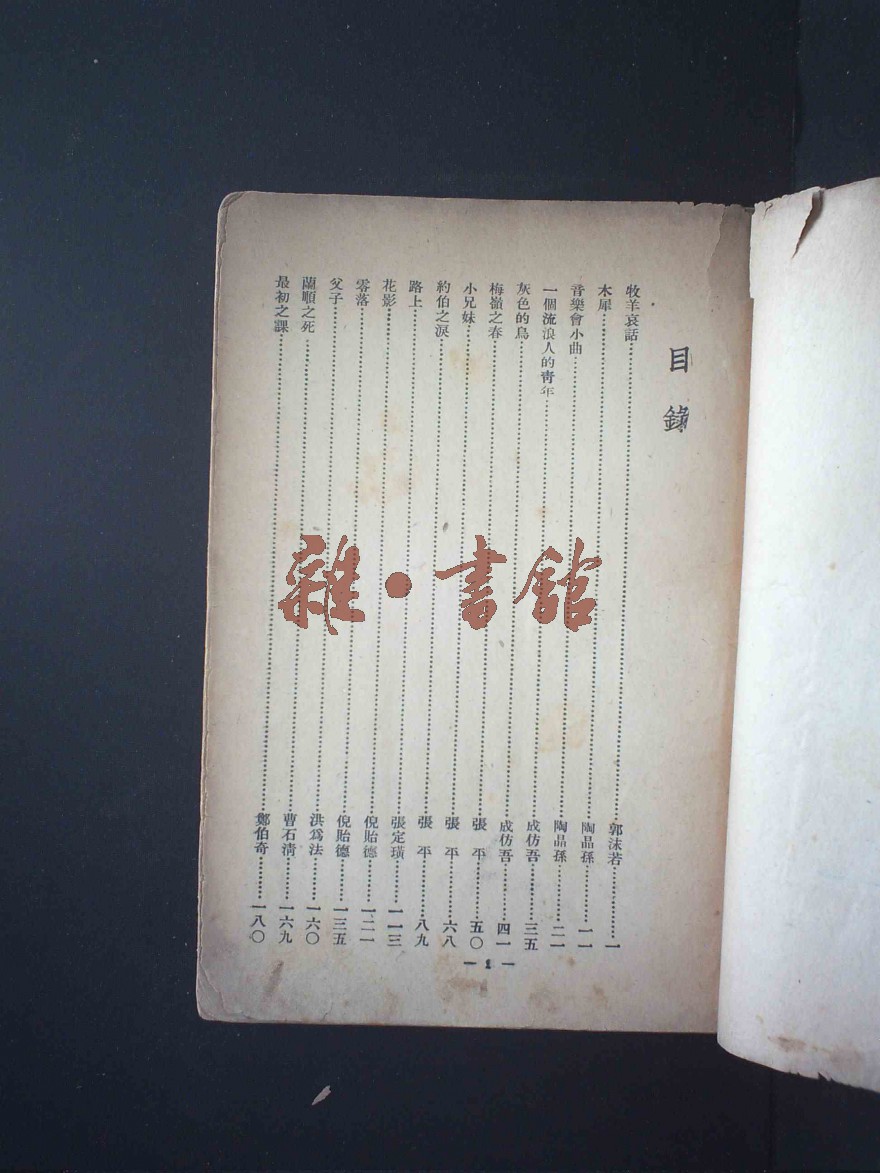 目錄
牧羊哀話……郭沫若……一
木犀……陶晶孫……一一
音樂會小曲……陶晶孫……二一
一個流浪人的青年……成仿吾……三五
灰色的鳥……成仿吾……四一
梅嶺之春……張 平……五〇
小兄妹……張 平……六八
約伯之淚……張 平……八九
路上……張定璜……一一三
花影……倪貽德……一二一
零落……倪貽德……一三五
父子……洪爲法……一六〇
蘭順之死……曹石清……一六九
最初之課……鄭伯奇……一八〇
— 1 —
雜·書館